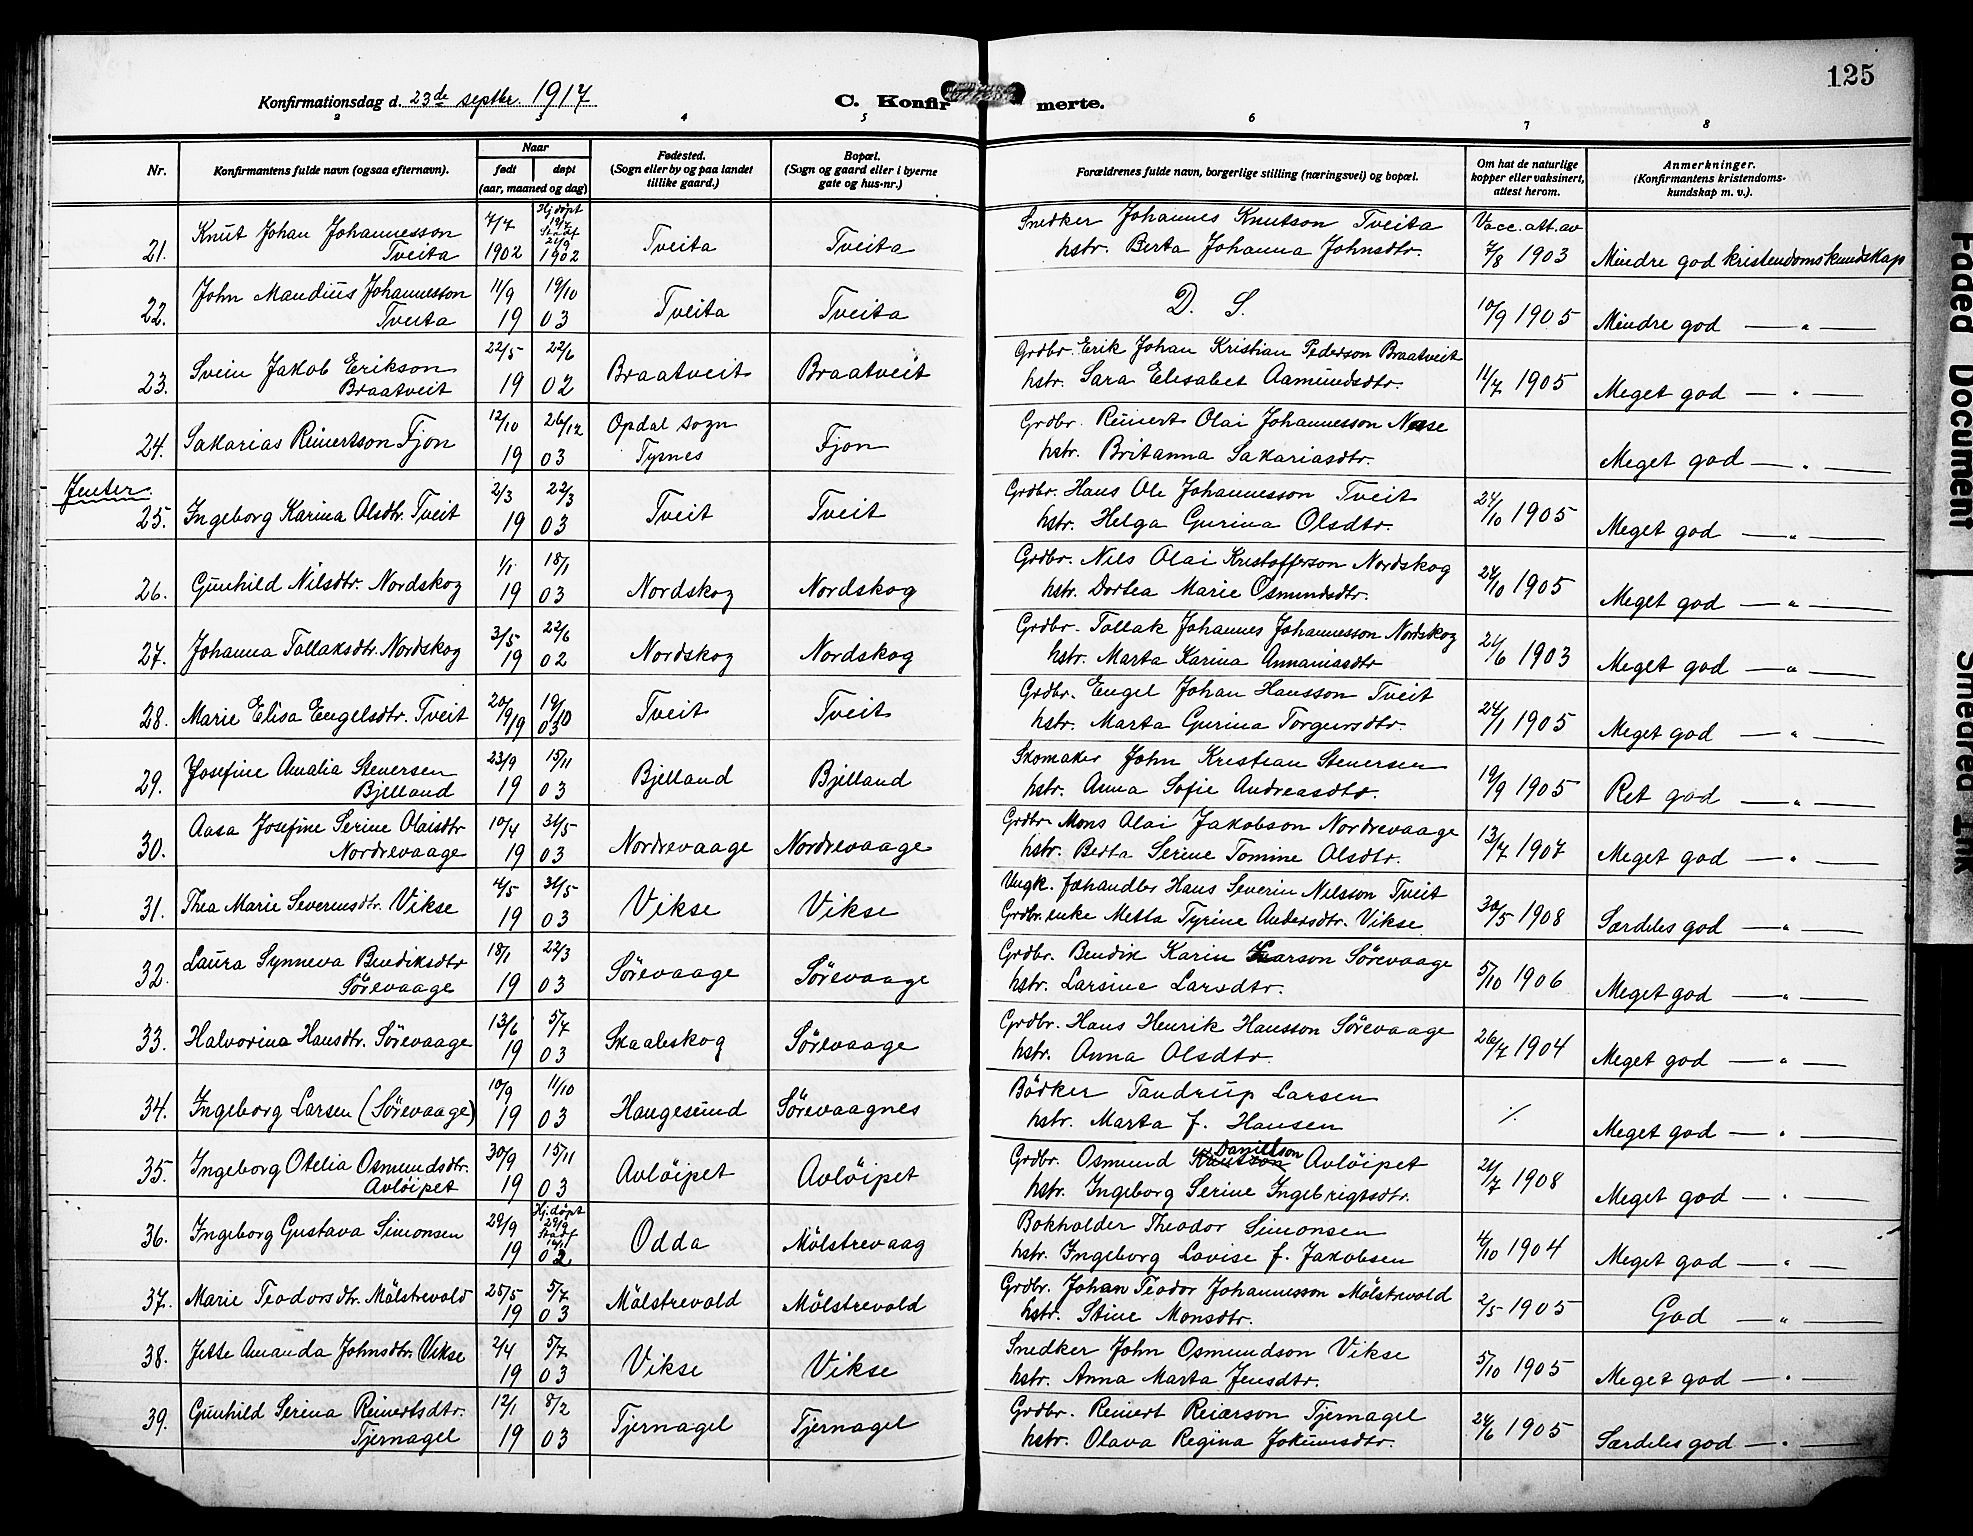 125
Konfirmationsdag d. 23de septbr. 1917
C. Konfirmerte.
2 3 4 5 6 7 8
Nr. Konfirmantens fulde navn (ogsaa efternavn). Naar født døpt (aar, maaned og dag) Fødested. (Sogn eller by og paa landet tillike gaard.) Bopæl. (Sogn og gaard eller i byerne gate og hus-nr.) Forældrenes fulde navn, borgerlige stilling (næringsvei) og bopæl. Om hat de naturlige kopper eller vaksinert, attest herom. Anmerkninger. (Konfirmantens kristendoms-kundskap m. v.).
21. Knut Johan Johannesson Tveita 7/7 1902 Hj.døpt 19/7 Stadf 21/9 1902 Tveita Tveita Snedker Johannes Knutson Tveita hstr. Berta Johanna Johnsdtr. Vacc. att. av 7/8 1903 Mindre god kristendomskundskap
22. John Mandius Johannesson Tveita 11/9 19/10 1903 Tveita Tveita D. S. 10/9 1905 Mindre god — " —
23. Svein Jakob Erikson Braatveit 22/5 22/6 1902 Braatveit Braatveit Grdbr. Erik Johan Kristian Pederson Braatveit hstr. Sara Elisabet Aamundsdtr. 11/7 1905 Meget god — " —
24. Sakarias Reinertson Fjon 12/10 26/12 1903 Opdal sogn Tysnes Fjon Grdbr. Reinert Olai Johannesson Nese hstr. Britanna Sakariasdtr. Meget god — " —
Jenter.
25. Ingeborg Karina Olsdtr. Tveit 2/3 22/3 1903 Tveit Tveit Grdbr. Hans Ole Johannesson Tveit hstr. Helga Gurina Olsdtr. 24/10 1905 Meget god — " —
26. Gunhild Nilsdtr. Nordskog 1/1 18/1 1903 Nordskog Nordskog Grdbr. Nils Olai Kristofferson Nordskog hstr. Dortea Marie Osmundsdtr. 24/10 1905 Meget god — " —
27. Johanna Tollaksdtr. Nordskog 3/5 22/6 1902 Nordskog Nordskog Grdbr. Tollak Johannes Johannesson Nordskog hstr. Marta Karina Annaniasdtr 21/6 1903 Meget god — " —
28. Marie Elisa Engelsdtr. Tveit 20/9 19/10 1903 Tveit Tveit Grdbr. Engel Johan Hansson Tveit hstr. Marta Gurina Torgersdtr. 24/1 1905 Meget god — " —
29. Josefine Amalia Stenersen Bjelland 23/9 15/11 1903 Bjelland Bjelland Skomaker John Kristian Stenersen hstr. Anna Sofie Andreasdtr. 19/9 1905 Ret god — " —
30. Aasa Josefine Serine Olaisdtr Nordrevaage 10/4 31/5 1903 Nordrevaage Nordrevaage Grdbr. Mons Olai Jakobson Nordrevaage hstr. Berta Serine Tomine Olsdtr. 13/7 1907 Meget god — " —
31. Thea Marie Severinsdtr. Vikse 4/5 31/5 1903 Vikse Vikse Ungk. fæhandler Hans Severin Nilsson Tveit Grdbr.enke Metta Tyrine Andersdtr. Vikse 30/5 1908 Særdeles god — " —
32. Laura Synneva Bendiksdtr Sörevaage 18/1 22/3 1903 Sörevaage Sörevaage Grdbr. Bendik Karin Larson Sörevaage hstr. Larsine Larsdtr. 5/10 1906 Meget god — " —
33. Halvorina Hansdtr. Sörevaage 13/6 5/7 1903 Skaaleskog Sörevaage Grdbr. Hans Henrik Hansson Sörevaage hstr. Anna Olsdtr. 26/7 1904 Meget god — " —
34. Ingeborg Larsen (Sörevaage) 10/9 11/10 1903 Haugesund Sörevaagnes Bödker Tandrup Larsen hstr. Marta f. Hansen ./. Meget god — " —
35. Ingeborg Otelia Osmundsdtr. Avlöipet 30/9 15/11 1903 Avlöipet Avlöipet Grdbr. Osmund Knutson Danielson Avlöipet hstr. Ingeborg Serine Ingebrigtsdtr. 21/7 1908 Meget god — " —
36. Ingeborg Gustava Simonsen 29/9 Hj.døpt 29/9 Stadf 16/11 1902 Odda Mölstrevaag Bokholder Theodor Simonsen hstr. Ingeborg Lovise f. Jakobsen 4/10 1904 Meget god — " —
37. Marie Teodorsdtr. Mölstrevold 25/5 5/7 1903 Mölstrevold Mölstrevold Grdbr. Johan Teodor Johannesson Mölstrevold hstr. Stine Monsdtr. 2/5 1905 God — " —
38. Jette Amanda Johnsdtr. Vikse 2/4 5/7 1903 Vikse Vikse Snedker John Osmundson Vikse hstr. Anna Marta Jensdtr. 5/10 1905 Meget god — " —
39. Gunhild Serina Reinertsdtr. Tjernagel 12/1 8/2 1903 Tjernagel Tjernagel Grdbr. Reinert Reiarson Tjernagel hstr. Olava Regina Jokumsdtr. 24/6 1905 Særdeles god — " —
Faded Document
Smeared Ink